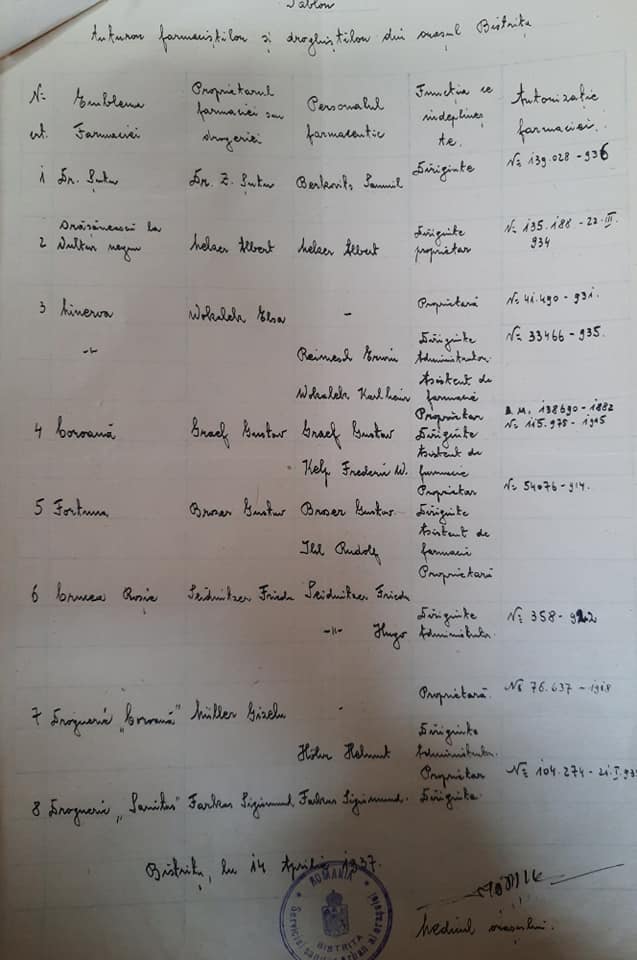 Tablou
tuturor farmaciștilor și droghiștilor din orașul Bistrița
№ crt. Emblema Farmaciei Proprietarul farmaciei sau drogeriei Personalul farmaceutic Funcția ce îndeplinește. Autorizație farmaciei.
1 Dr. Șutu Dr. Z. Șutu Berkovits Samuil Diriginte № 139.028 - 936
2 la Vultur negru Melzer Albert Melzer Albert Diriginte proprietar № 135.188 - 22.III.934
3 Minerva Wokalek Elsa - Proprietară № 41.490 - 931.
-"- Reimesch Erwin Diriginte Administrator № 33466 - 935.
Wokalek Karl Asistent de farmacie
4 Coroană Graef Gustav Graef Gustav Proprietar Diriginte B.M. 138690 - 1882 № 115.975 - 1905
Kelp Frederic W. Asistent de farmacie
5 Fortuna Broser Gustav Broser Gustav. Proprietar Diriginte № 54076 - 914.
Ihl Rudolf Asistent de farmacie
6 Crucea Roșie Seidnitzer Frieda Seidnitzer Frieda Proprietară
-"- Hugo Diriginte Administrator № 358 - 922
7 Drogueria "Coroană" Müller Gizela - Proprietară. № 76.637 - 1918
Höhr Helmut Diriginte Administrator.
8 Drogueria "Sanitas" Farkas Sigismund Farkas Sigismund. Proprietar Diriginte № 104.274 - 21.I.93
Bistrița, la 14 Aprilie 1937.
ROMÂNIA
BISTRIȚA
Medicul orașului.